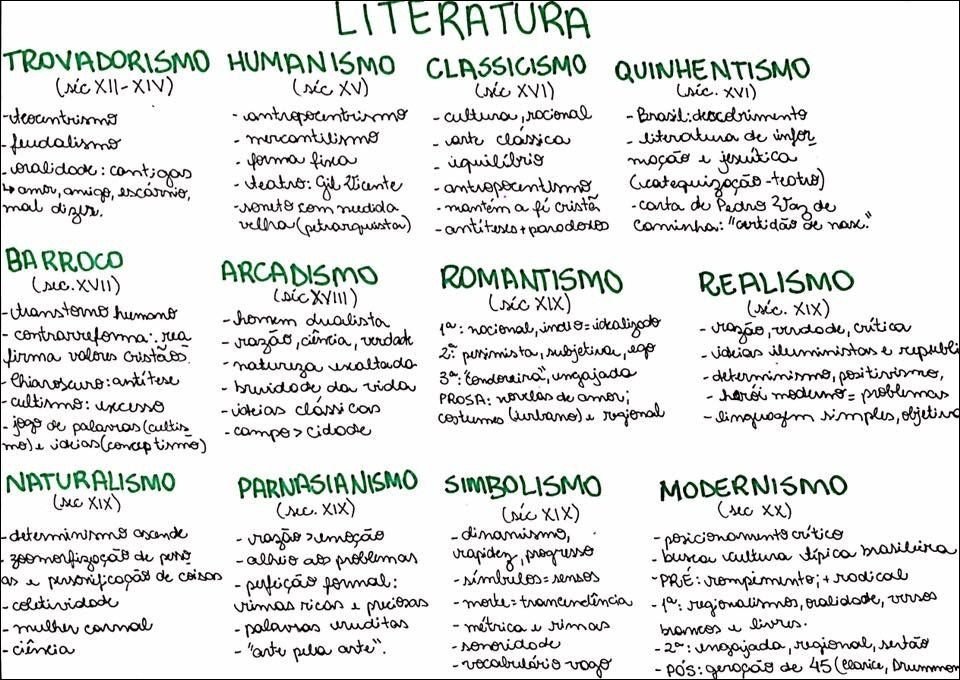 LITERATURA
TROVADORISMO
(séc XII-XIV)
- teocentrismo
- feudalismo
- oralidade: cantigas
↳ amor, amigo, escárnio,
mal dizer.
HUMANISMO
(séc XV)
- antropocentrismo
- mercantilismo
- forma fixa
- teatro: Gil Vicente
- soneto com medida
velha (petrarquista)
CLASSICISMO
(séc XVI)
- cultura, racional
- arte clássica
- equilíbrio
- antropocentismo
- mantém a fé cristã
- antíteses + paradoxos
QUINHENTISMO
(séc. XVI)
- Brasil: descobrimento
- literatura de infor
mação e jesuítica
(catequização - teatro)
- carta de Pedro Vaz de
Caminha: "certidão de nasc."
BARROCO
(séc. XVII)
- transtorno humano
- contrarreforma: rea
firma valores cristãos.
- Chiaroscuro: antítese
- cultismo: excesso
- jogo de palavras (cultis
mo) e ideias (conceptismo)
ARCADISMO
(séc XVIII)
- homem dualista
- razão, ciência, verdade
- natureza exaltada
- brevidade da vida
- ideias clássicas
- campo > cidade
ROMANTISMO
(séc XIX)
1ª: nacional, índio = idealizado
2ª: pessimista, subjetiva, ego
3ª: "condoreira", engajada
PROSA: novelas de amor;
costumes (urbano) e regional
REALISMO
(séc. XIX)
- razão, verdade, crítica
- ideias iluministas e republi
- determinismo, positivismo,
- herói moderno = problemas
- linguagem simples, objetiva
NATURALISMO
(séc XIX)
- determinismo ascende
- zoomorfização de pesso
as e personificação de coisas
- coletividade
- mulher carnal
- ciência
PARNASIANISMO
(séc. XIX)
- razão > emoção
- alheio aos problemas
- perfeição formal:
rimas ricas e preciosas
- palavras eruditas
- "arte pela arte".
SIMBOLISMO
(séc XIX)
- dinamismo,
rapidez, progresso
- símbolos = sensos
- morte = trancendência
- métrica e rimas
- sonoridade
- vocabulário vago
MODERNISMO
(séc XX)
- posicionamento crítico
- busca cultura típica brasileira
- PRÉ: rompimento; + radical
- 1ª: regionalismos, oralidade, versos
brancos e livres.
- 2ª: engajada, regional, sertão
- PÓS: geração de 45 (Clarice, Drummon